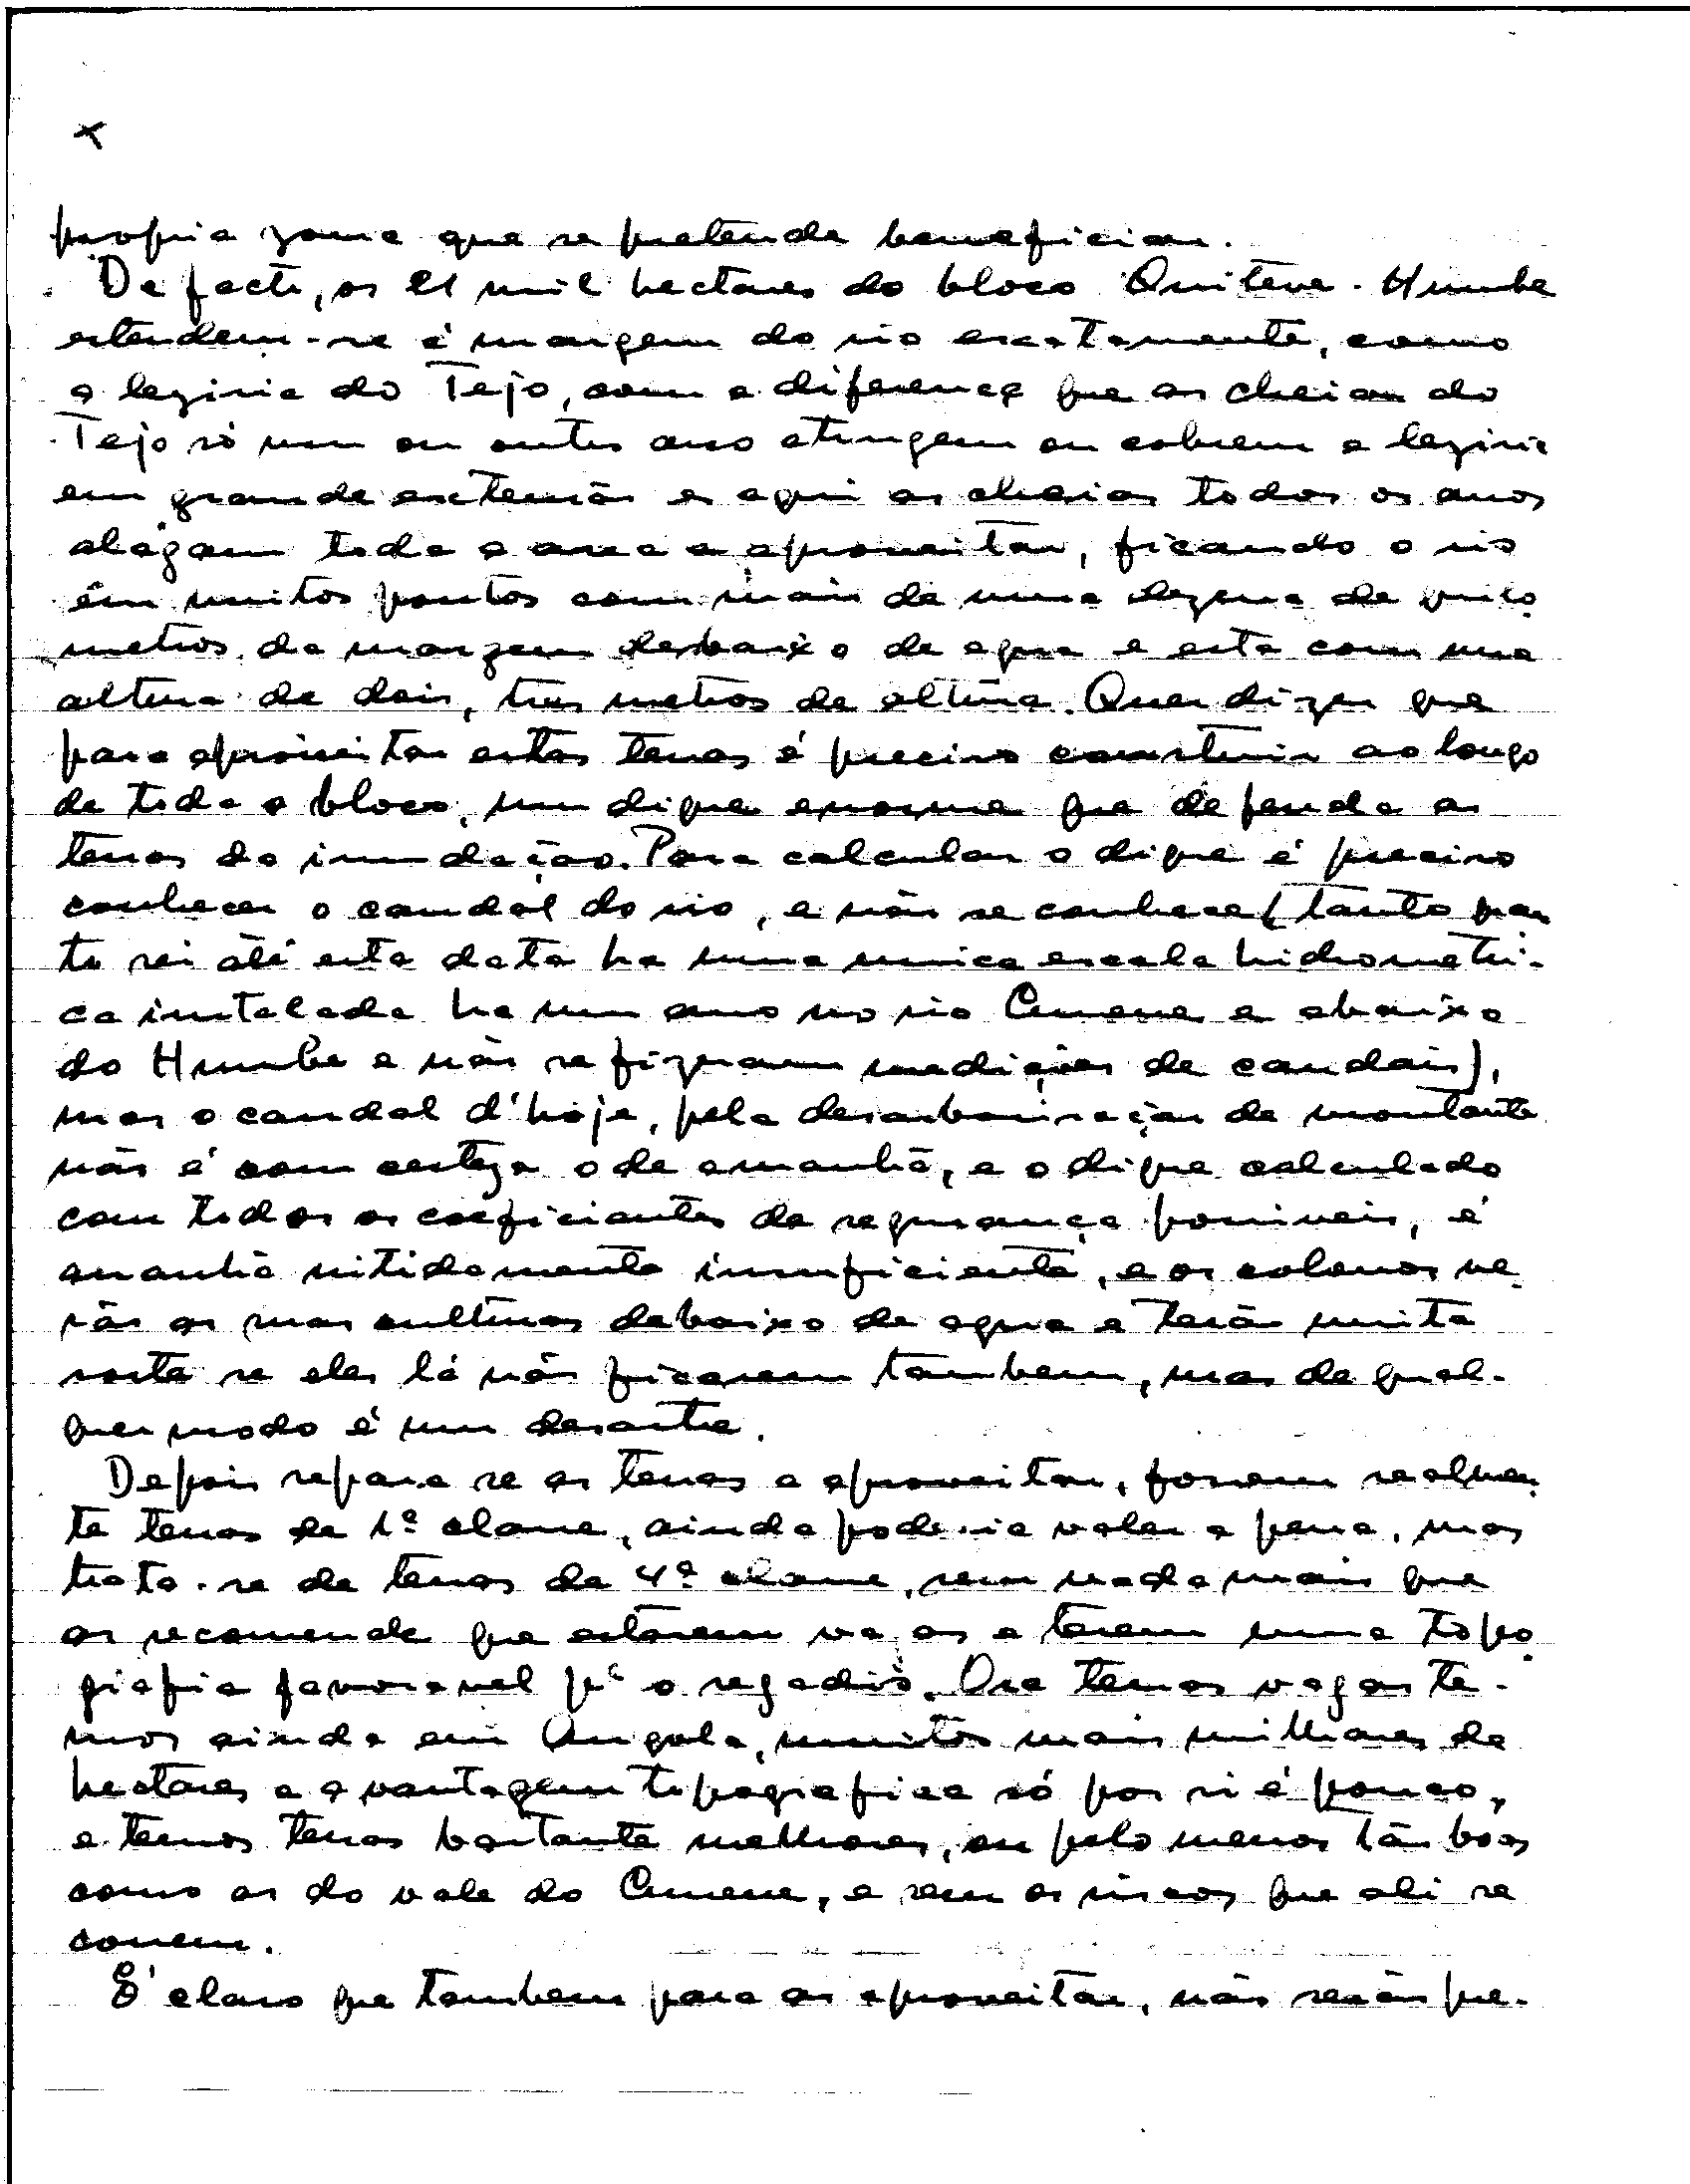 x
propria zona que se pretende beneficiar.
De facto, os 21 mil hectares do bloco Quiteve-Humbe
estendem-se á margem do rio exatamente, como
a leziria do Tejo, com a diferença que as cheias do
Tejo só um ou outro ano atingem ou cobrem a leziria
em grande extensão e aqui as cheias todos os anos
alagam toda a area a aproveitar, ficando o rio
em muitos pontos com mais de uma dezena de quilo
metros de margem debaixo de agua e esta com uma
altura de dois, tres metros de altura. Quer dizer que
para aproveitar estas terras é preciso construir ao longo
de todo o bloco, um dique enorme que defenda as
terras da inundação. Para calcular o dique é preciso
conhecer o caudal do rio, e não se conhece (tanto quan
to sei até esta data ha uma unica escala hidrometri-
ca instalada ha um ano no rio Cunene e abaixo
do Humbe e não se fizeram medições de caudais),
mas o caudal d'hoje, pela desarborisação de montante
não é com certeza o de amanhã, e o dique calculado
com todos os coeficientes de segurança possiveis, é
amanhã nitidamente insuficiente, e os colonos ve
rão as suas culturas debaixo de agua e terão muita
sorte se eles lá não ficarem tambem, mas de qual-
quer modo é um desastre.
Depois repara se as terras a aproveitar, fossem realmen
te terras de 1ª classe, ainda poderia valer a pena, mas
trata-se de terras de 4ª classe, sem nada mais que
as recomende que estarem vagas e terem uma topo
grafia favoravel pª o regadio. Ora terras vagas te-
mos ainda em Angola, muitos mais milhares de
hectares e a vantagem topografica só por si é pouco,
e temos terras bastante melhores, ou pelo menos tão boas
como as do vale do Cunene, e sem os riscos que ali se
correm.
É claro que tambem para as aproveitar, não serão pre-